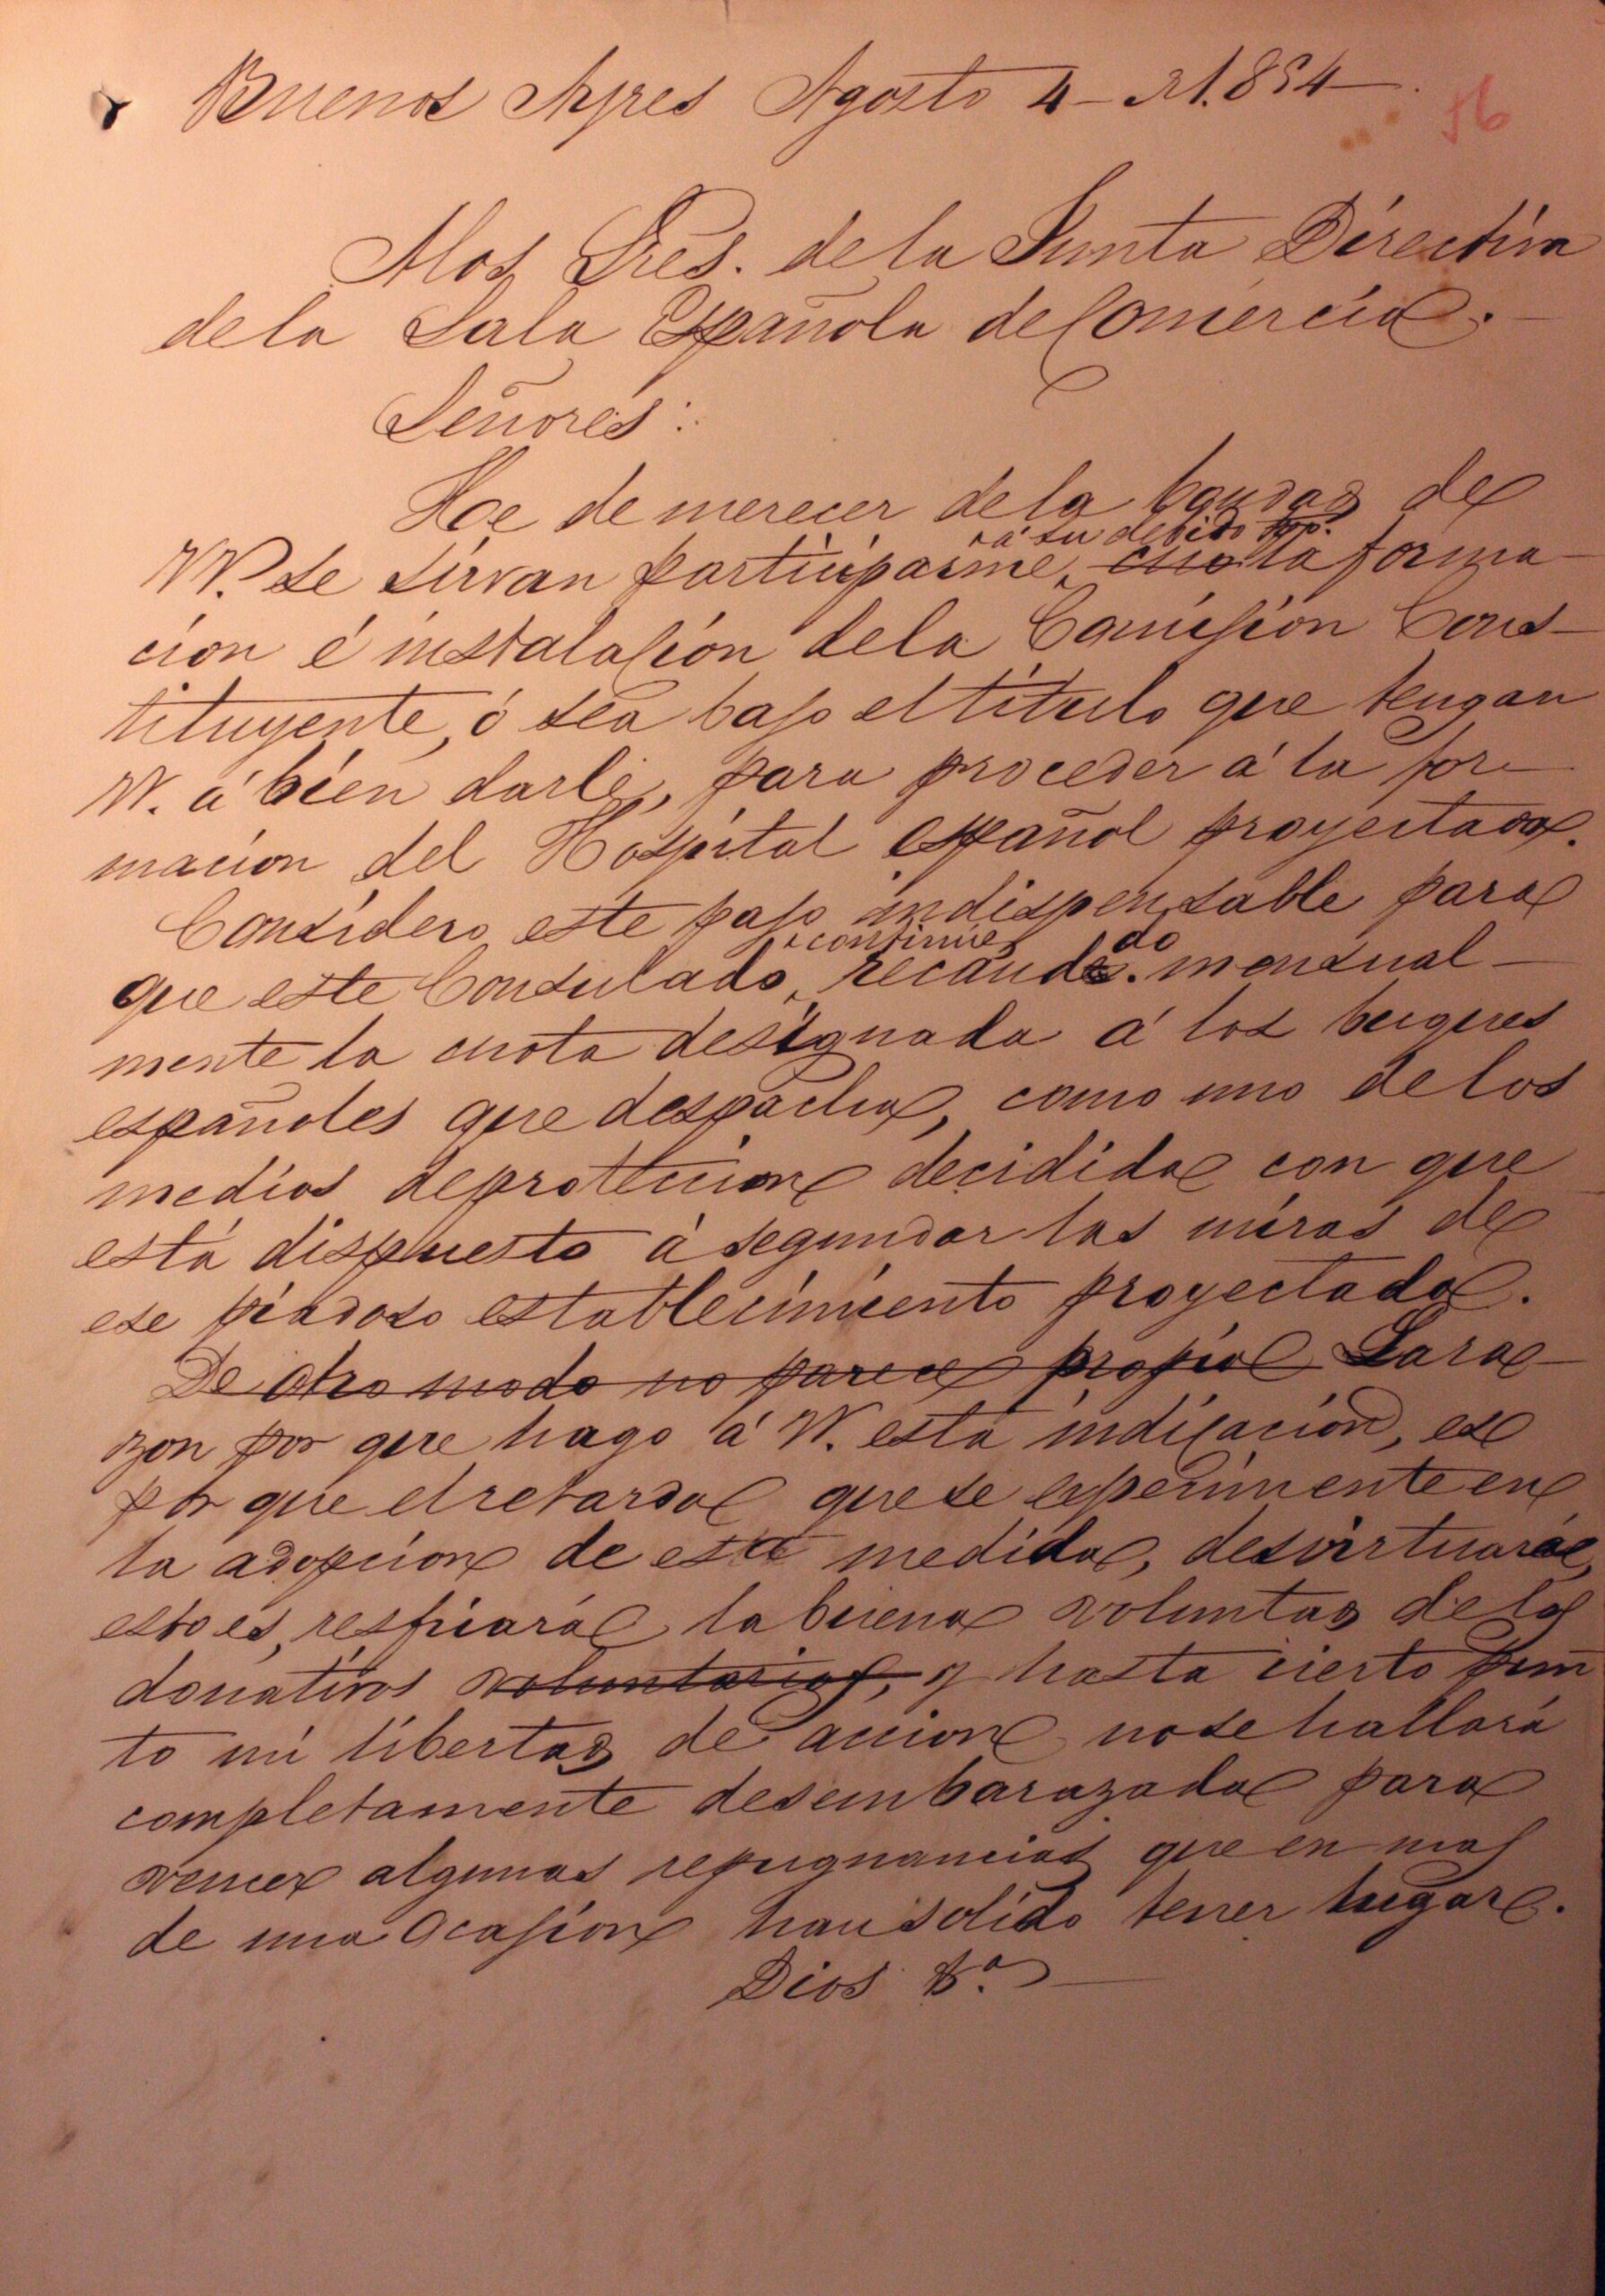 Buenos Ayres Agosto 4 - 1.854
56
A los Sres. de la Junta Directiva
de la Sala Española de Comercio.
Señores:
He de merecer de la bondad de
á su debido tpo.
VV. se sirvan participarme, la forma-
cion é instalasion de la Comision Cons-
tituyente, ó sea bajo el titulo que tengan
VV. á bien darle, para proceder á la for-
macion del Hospital español proyectado.
Considero este paso indispensable para
continúe
que este Consulado, recaudando mensual-
mente la cuota designada á los buques
españoles que despacha, como uno de los
medios de proteccion decidida con que
está dispuesto á segundar las miras de
ese piadoso establecimiento proyectado.
De otro modo no parece propio La ra-
zon por que hago á VV. esta indicacion, es
por que el retardo que se esperimente en
la adopcion de esta medida, desvirtuará,
esto es, resfriará la buena voluntad de los
donativos voluntarios, y hasta cierto pun
to mi libertad de accion no se hallará
completamente desembarazada para
vencer algunas repugnancias que en mas
de una ocasion han solido tener lugar.
Dios &a